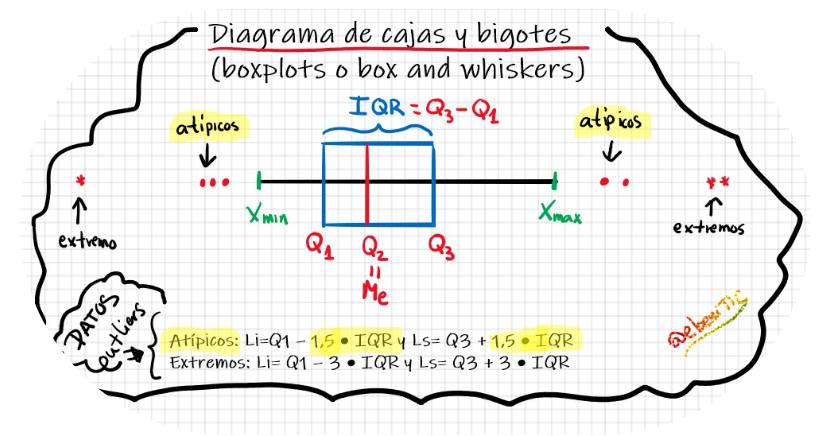 Diagrama de cajas y bigotes
(boxplots o box and whiskers)
IQR = Q3 - Q1
atípicos
atípicos
*
•••
••
**
extremo
Xmin
Xmax
extremos
Q1 Q2 Q3
=
Me
DATOS
outliers
Atípicos: Li=Q1 – 1,5 • IQR y Ls= Q3 + 1,5 • IQR
Extremos: Li= Q1 – 3 • IQR y Ls= Q3 + 3 • IQR